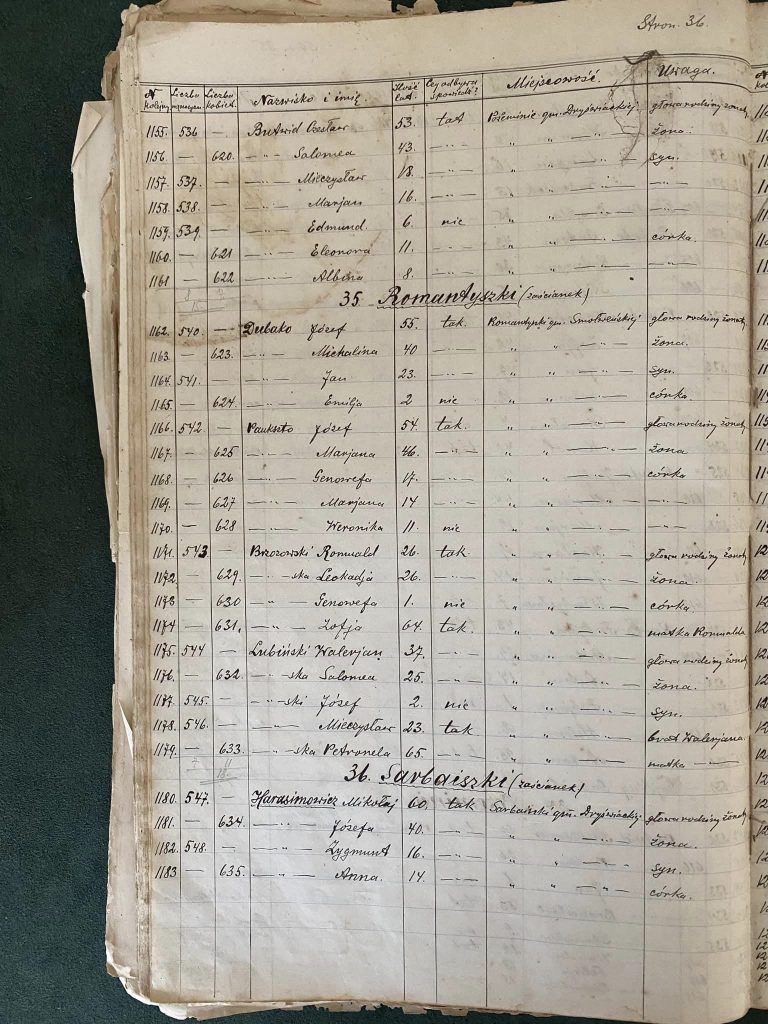 Stron. 36.
N kolejny Liczba mężczyzn Liczba kobiet. Nazwisko i imię. Ilość lat. Czy odbywa spowiedź? Miejscowość. Uwaga.
1155. 536 — Butwid Czesław 53. tak gm. Dryświackiej głowa rodziny żonaty
1156. — 620. — " — Salomea 43. — " — " " — " — żona.
1157. 537. — — " — Mieczysław 18. — " — " " — " — syn.
1158. 538. — — " — Marjan 16. — " — " " — " — — " —
1159. 539. — — " — Edmund. 6. nie " " — " — — " —
1160. — 621 — " — Eleonora 11. — " — " " — " — córka.
1161 — 622 — " — Albina 8. — " — " " — " — — " —
35. Romantyszki (zaścianek)
1162. 540. — Dubako Józef 55. tak. gm. Smołweńskiej głowa rodziny żonaty
1163. — 623. — " — Michalina 40 — " — " " — " — żona.
1164. 541. — — " — Jan 23. — " — " " — " — syn.
1165. — 624. — " — Emilja 2 nie " " — " — córka.
1166. 542 — Paukszto Józef 54. tak. " " — " — głowa rodziny żonaty
1167. — 625 — " — Marjana 46. — " — " " — " — żona
1168. — 626 — " — Genowefa 17. — " — " " — " — córka
1169. — 627 — " — Marjana 14 — " — " " — " — — " —
1170. — 628 — " — Weronika 11. nie " " — " — — " —
1171. 543 — Brzozowski Romuald 26. tak. " " — " — głowa rodziny żonaty
1172. — 629. — " — ska Leokadja 26. — " — " " — " — żona
1173 — 630 — " — Genowefa 1. nie " " — " — córka
1174 — 631. — " — Zofja 64. tak. " " — " — matka Romualda
1175. 544 — Lubiński Walerjan 37. — " — " " — " — głowa rodziny żonaty
1176. — 632. — " — ska Salomea 25. — " — " " — " — żona.
1177. 545. — — " — ski Józef 2. nie " " — " — syn.
1178. 546. — — " — Mieczysław 23. tak " " — " — brat Walerjana.
1179. — 633. — " — ska Petronela 65. — " — " " — " — matka — " —
36. Sarbaiszki (zaścianek)
1180. 547. — Harasimowicz Mikołaj 60. tak gm. Dryświackiej głowa rodziny żonaty
1181. — 634. — " — Józefa 40. — " — " " — " — żona.
1182. 548. — — " — Zygmunt 16. — " — " " — " — syn.
1183 — 635. — " — Anna. 14. — " — " " — " — córka.